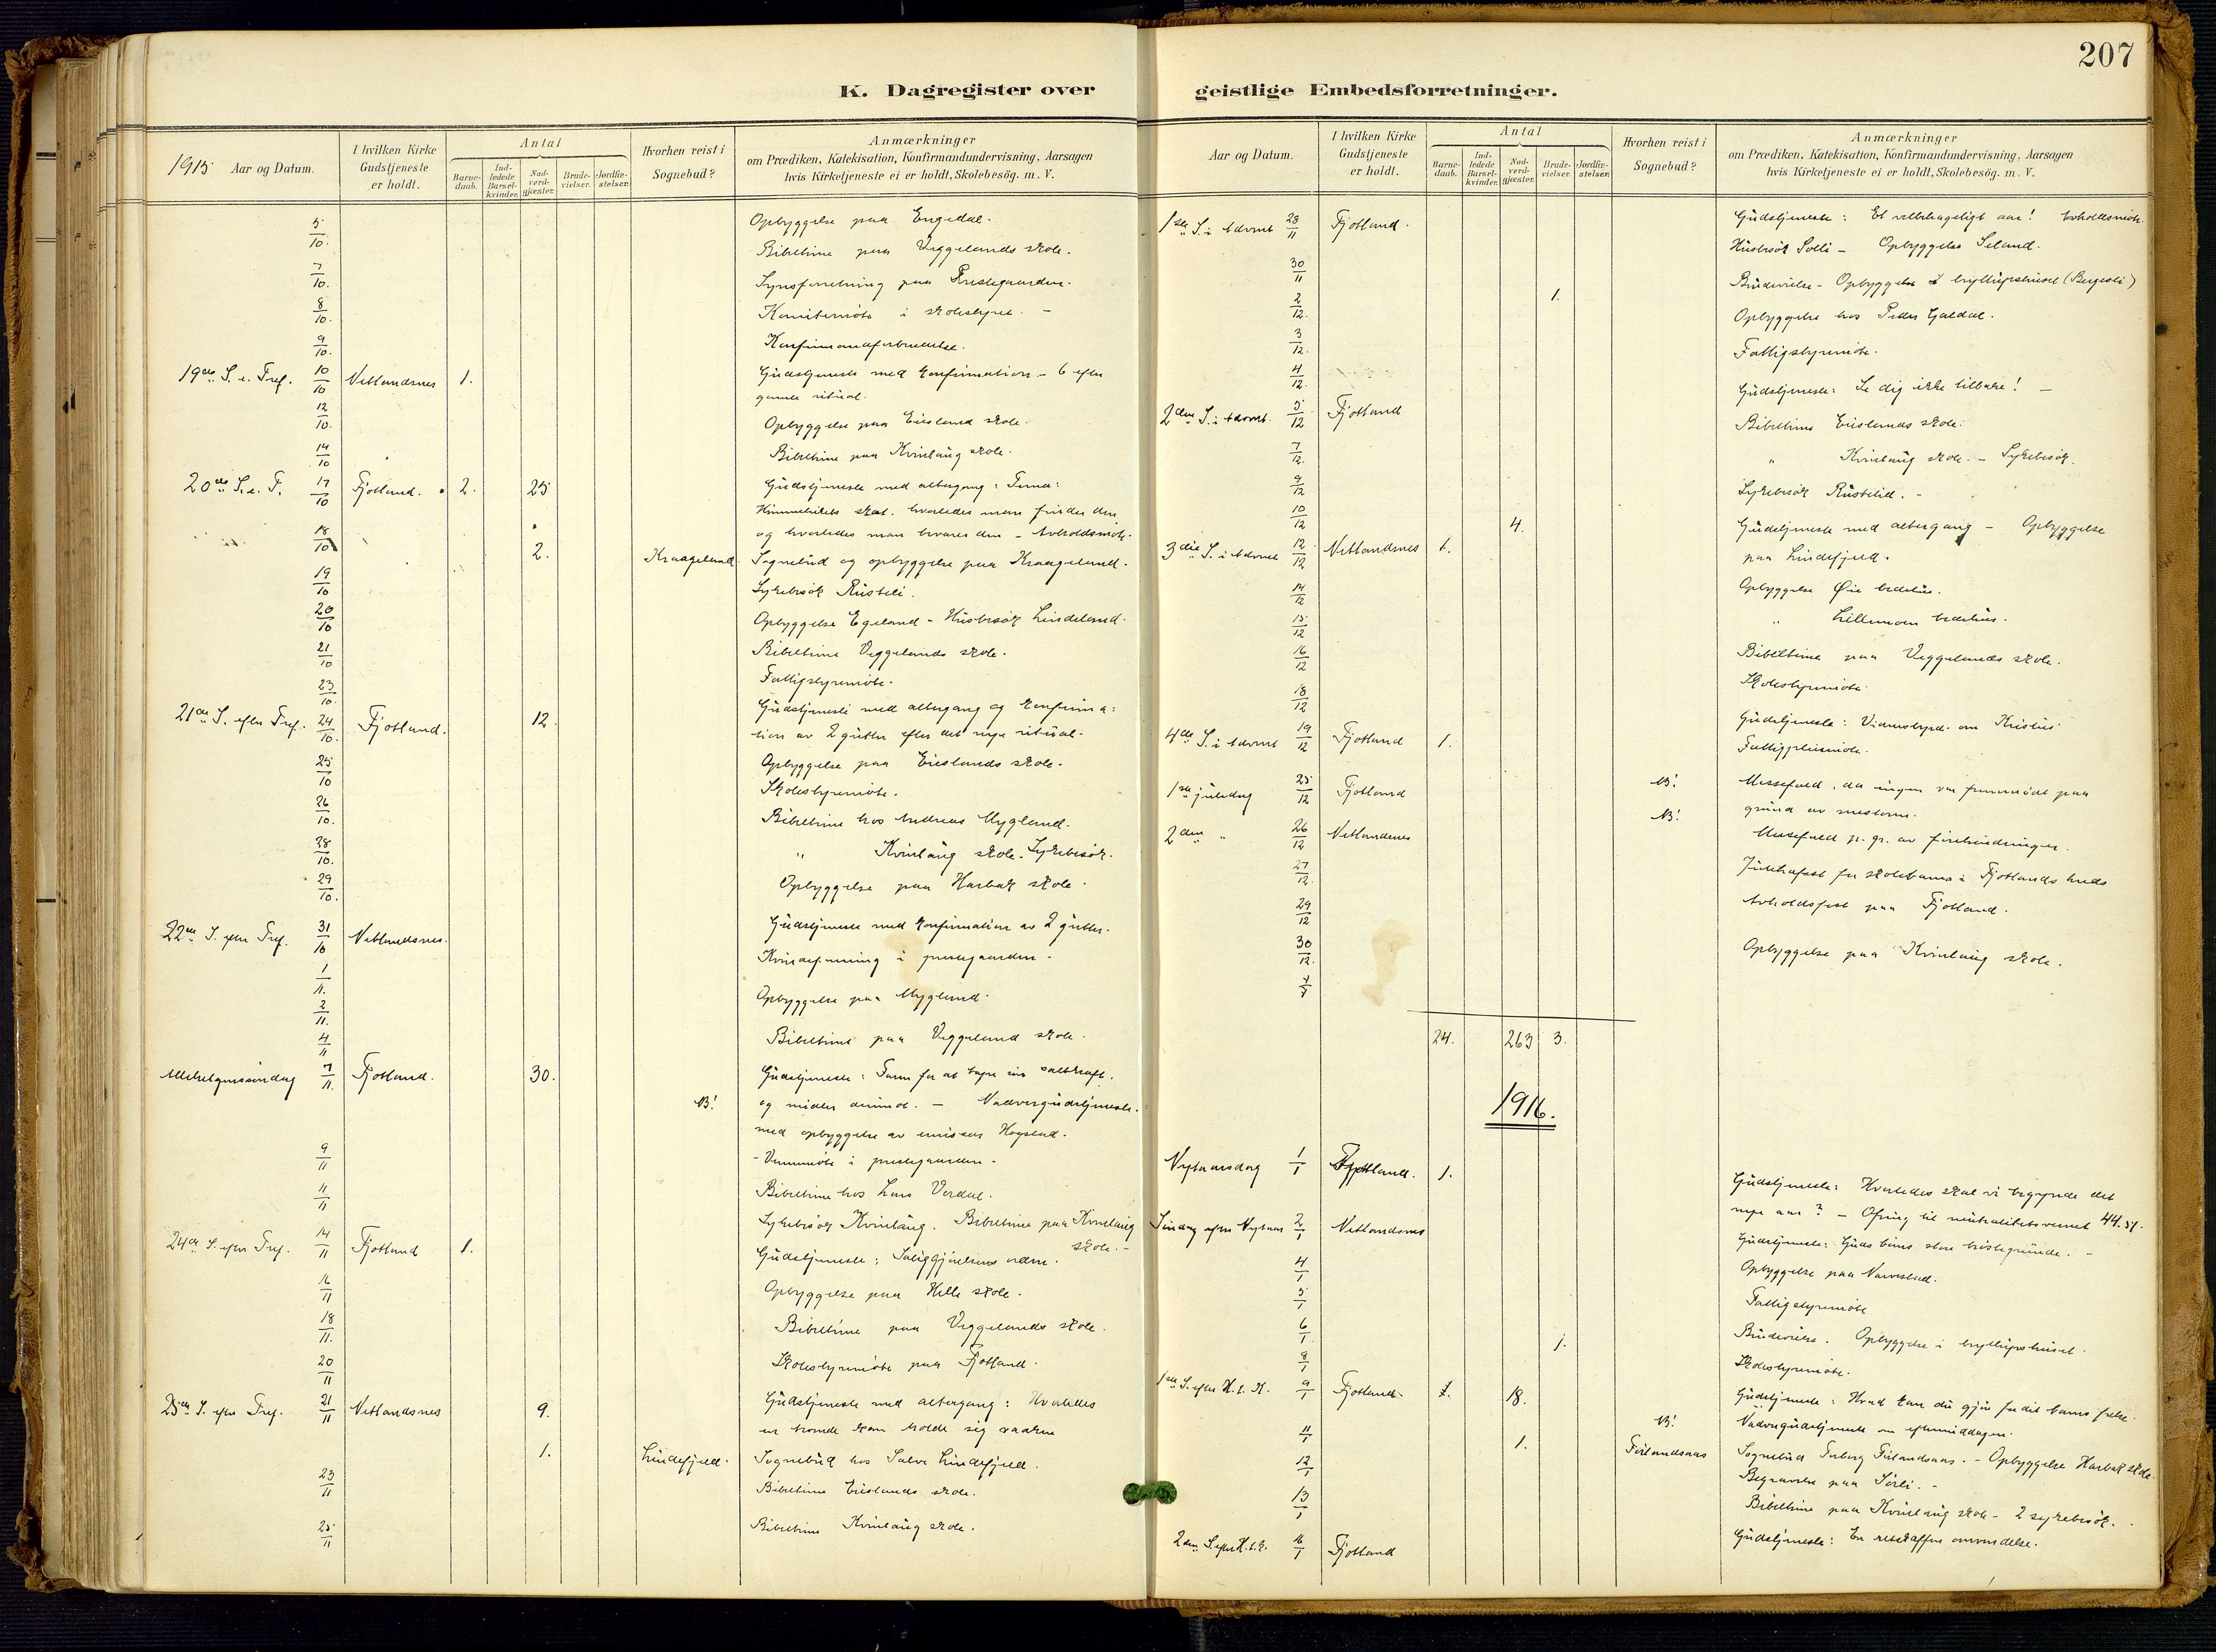 207
K. Dagregister over geistlige Embedsforretninger.
1915 Aar og Datum.
I hvilken Kirke Gudstjeneste er holdt.
Antal
Barne-daab.
Ind-ledede Barsel-kvinder.
Nad-verd-gjæster.
Brude-vielser.
Jordfæ-stelser.
Hvorhen reist i Sognebud?
Anmærkninger
om Prædiken, Katekisation, Konfirmandundervisning, Aarsagen
hvis Kirketjeneste ei er holdt, Skolebesög. m. V.
5/10. Opbyggelse paa Engedal.
Bibeltime paa Veggelands skole.
7/10. Synsforretning paa Prestegaarden.
8/10. Komitemöte i skolestyret. -
9/10. Konfirmandforberedelse.
19de S. e. Tref. 10/10 Netlandsnes 1. Gudstjeneste med konfirmation - 6 efter
gamle ritual.
12/10. Opbyggelse paa Eiesland skole.
14/10 Bibeltime paa Kvinlaug skole.
20de S. e. T. 17/10 Fjotland. 2. 25 Gudstjeneste med altergang: Tema:
Himmerikets skat. hvorledes man finder den
og hvorledes man bevarer den - Avholdsmöte.
18/10 2. Kraageland. Sognebud og opbyggelse paa Kraageland.
19/10 Sykebesök Rusteli.
20/10 Opbyggelse Egeland - Husbesök Lindeland.
21/10 Bibeltime Veggelands skole.
23/10. Fattigstyremöte.
21de S. efter Tref. 24/10. Fjotland. 12. Gudstjeneste med altergang og konfirma:
tion av 2 gutter efter det nye ritual.
25/10 Opbyggelse paa Eieslands skole.
26/10. Skolestyremöte.
Bibeltime hos Andreas Mygland.
28/10. " Kvinlaug skole. Sykebesök.
29/10. Opbyggelse paa Harbak skole.
22de S. efter Tref. 31/10 Netlandsnes. Gudstjeneste med konfirmation av 2 gutter.
1/11. Kvindeforening i prestegaarden.
2/11. Opbyggelse paa Mygland.
4/11 Bibeltime paa Veggeland skole.
Allehelgenssöndag 7/11. Fjotland. 30. Gudstjeneste: Faren for at tape sin saltkraft.
NB! og midler derimot. - Nadvergudstjeneste.
med opbyggelse av emissær Hogstad.
9/11 - Vennemöte i prestegaarden.
11/11 Bibeltime hos Lars Verdal.
Sykebesök Kvinlaug. Bibeltime paa Kvinlaug
skole. -
24de S. efter Tref. 14/11 Fjotland 1. Gudstjeneste: Saliggjörelsens orden.
16/11 Opbyggelse paa Helle skole.
18/11. Bibeltime paa Veggelands skole.
20/11 Skolestyremöte paa Fjotland.
25de S. efter Tref. 21/11 Netlandsnes 9. Gudstjeneste med altergang: Hvorledes
en troende kan holde sig vaaken
1. Lindefjeld. Sognebud hos Salve Lindefjeld.
23/11 Bibeltime Eieslands skole.
25/11 Bibeltime Kvinlaug skole.
Aar og Datum.
I hvilken Kirke Gudstjeneste er holdt.
Antal
Barne-daab.
Ind-ledede Barsel-kvinder.
Nad-verd-gjæster.
Brude-vielser.
Jordfæ-stelser.
Hvorhen reist i Sognebud?
Anmærkninger
om Prædiken, Katekisation, Konfirmandundervisning, Aarsagen
hvis Kirketjeneste ei er holdt, Skolebesög. m. V.
1ste S. i Advent 28/11 Fjotland. Gudstjeneste: Et velbehageligt aar! Avholdsmöte.
30/11 Husbesök Solli - Opbyggelse Seland.
2/12. 1. Brudevielse - Opbyggelse i bryllupshuset (Bergesli)
3/12. Opbyggelse hos Peder Galdal.
4/12. Fattigstyremöte.
2den S. i Advent. 5/12 Fjotland Gudstjeneste: Se dig ikke tilbake! -
7/12. Bibeltime Eieslands skole.
9/12 " Kvinlaug skole. - Sykebesök.
10/12 Sykebesök Rustelid. -
3die S. i Advent 12/12 Netlandsnes 1. 4. Gudstjeneste med altergang - Opbyggelse
paa Lindefjeld.
14/12 Opbyggelse Öie bedehus.
15/12 " Lillemoen bedehus.
16/12 Bibeltime paa Veggelands skole.
18/12 Skolestyremöte.
4de S. i Advent 19/12 Fjotland 1. Gudstjeneste: Vidnesbyrd om Kristus
Fattigpleiemöte.
1ste juledag 25/12 Fjotland NB! Messefald, da ingen var fremmödt paa
grund av snestorm.
2den " 26/12 Netlandsnes NB! Messefald p. gr. av föiehindringer.
27/12. Juletræfest for skolebarna i Fjotlands kreds
29/12 Avholdsfest paa Fjotland.
30/12. Opbyggelse paa Kvinlaug skole.
24. 263 3.
1916.
Nytaarsdag 1/1 Fjotland. 1. Gudstjeneste: Hvorledes skal vi begynde det
nye aar? - Ofring til neutralitetsvernet 44.51.
Söndag efter Nytaar 2/1 Netlandsnes Gudstjeneste: Guds barns store tröstegrunde. -
4/1 Opbyggelse paa Narvestad.
5/1 Fattigstyremöte
6/1 1. Brudevielse. Opbyggelse i bryllupshuset.
8/1 Skolestyremöte.
1ste S. efter H. t. K. 9/1 Fjotland. 1. 18. Gudstjeneste: Hvad kan du gjöre for dit barns frelse.
NB! Nadvergudstjeneste om eftermiddagen.
11/1 1. Förlandsaas Sognebud Torborg Förlandsaas. - Opbyggelse Harbak skole.
12/1 Begravelse paa Sörli. -
13/1 Bibeltime paa Kvinlaug skole - 2 sykebesök.
2den S. efter H. t. K. 16/1 Fjotland Gudstjeneste: En retskaffen omvendelse.